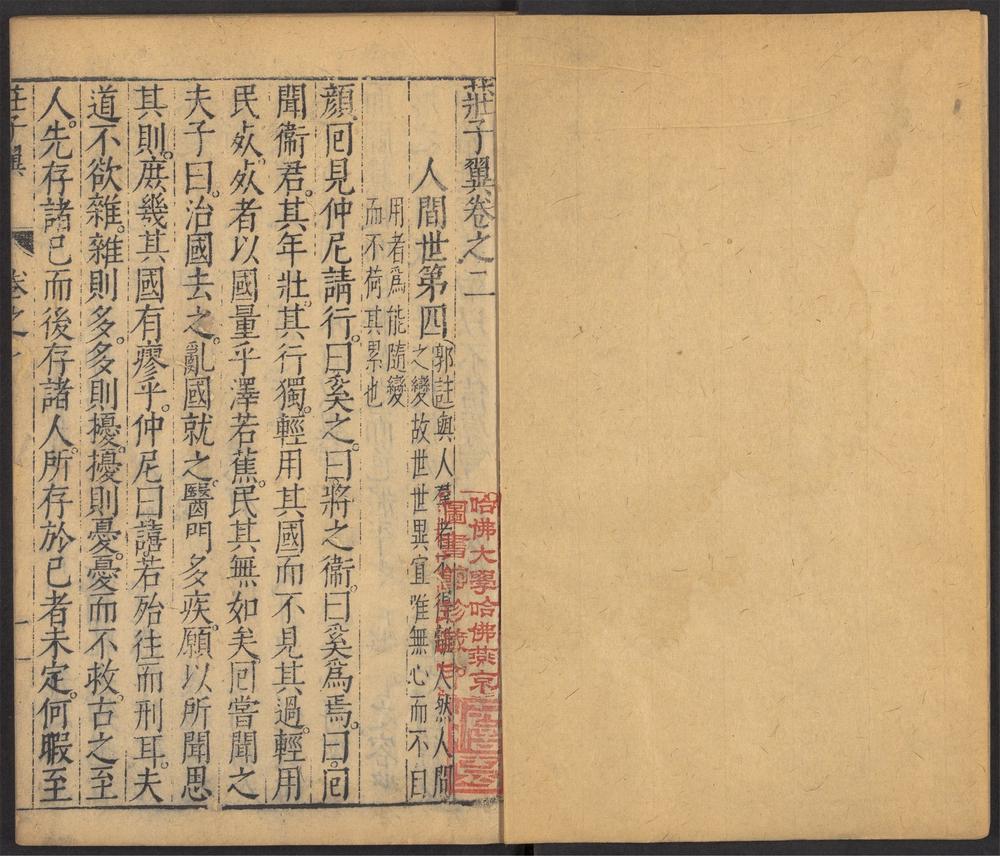 莊子翼卷之二
人間世第四
郭註與人羣者不得離人然人間
之變故世世異宜唯無心而不自
用者爲能隨變
而不荷其累也
顔囘見仲尼請行。曰奚之。曰將之衞。曰奚爲焉。曰囘
聞衞君。其年壯。其行獨。輕用其國而不見其過。輕用
民死。死者以國量乎澤若蕉。民其無如矣。囘嘗聞之
夫子曰。治國去之。亂國就之。醫門多疾。願以所聞思
其則。庶幾其國有瘳乎。仲尼曰。譆。若殆往而刑耳。夫
道不欲雜。雜則多。多則擾。擾則憂。憂而不救。古之至
人。先存諸己而後存諸人。所存於己者未定。何暇至
莊子翼
卷之
一
哈佛大學哈佛燕京
圖書館珍藏印